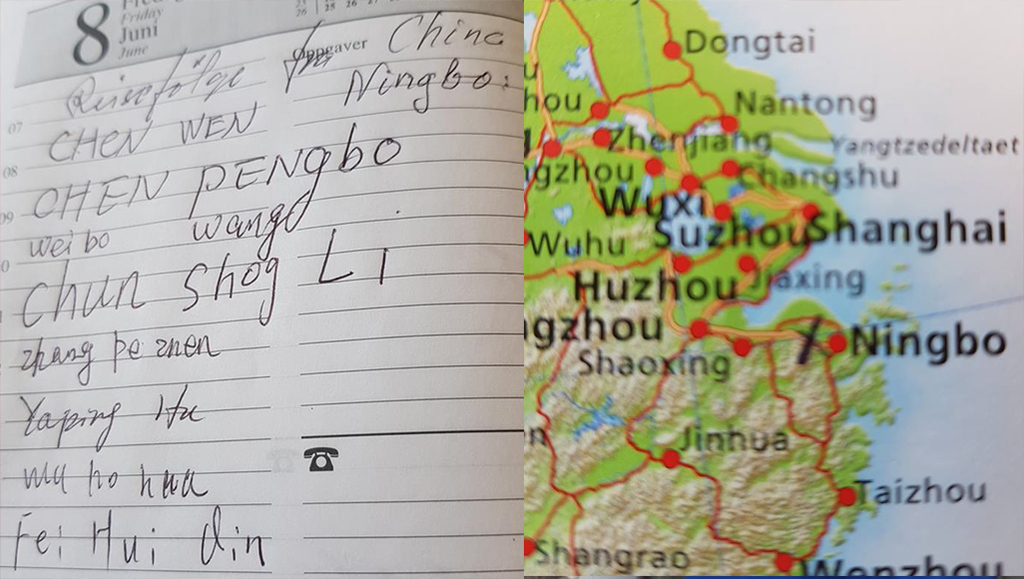 8
Friday
Juni
June
25 26 27
26
Oppgaver
Reisefølge fra China
Ningbo:
07
CHEN WEN
08
CHEN PENgbo
09
wei bo wang
0
Chun Shog Li
zhang pe znen
Yaping Hu
ma ho hua
Fei Hui Qin
Dongtai
hou
Nantong
Zhenjiang
Yangtzedeltaet
gzhou
Changshu
Wuxi
Wuhu
Suzhou
Shanghai
Huzhou
Jiaxing
gzhou
Ningbo
Shaoxing
Jinhua
Taizhou
Shangrao
Wenzhou